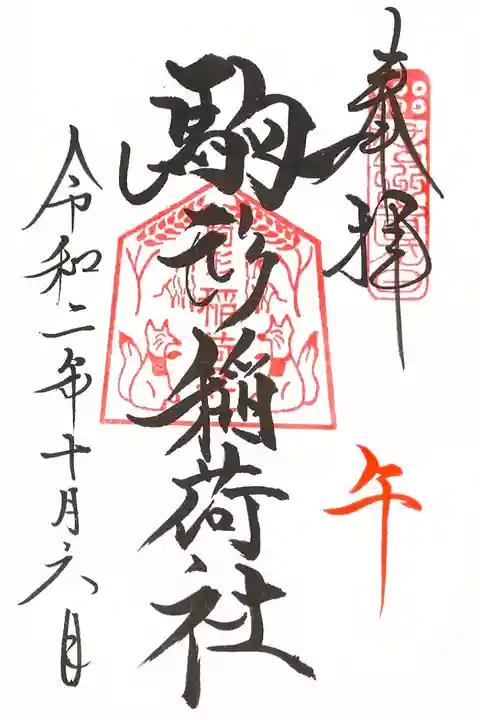 奉拝
午
駒形稲荷社
令和二年十月六日